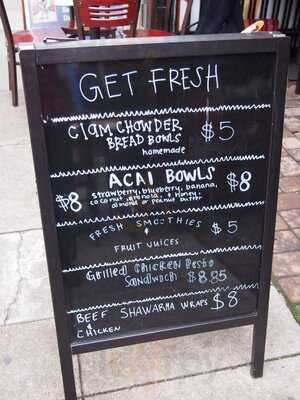 GET FRESH
Clam CHOWDER
BREAD BOWLS $5
homemade
ACAI BOWLS
$8 strawberry, blueberry, banana, $8
coconut, granola, & Honey,
almond or peanut butter
FRESH SMOOTHIES $5
&
FRUIT JUICES
Grilled Chicken Pesto
SANDWICH $8.85
BEEF SHAWARMA WRAPS $8
&
CHICKEN